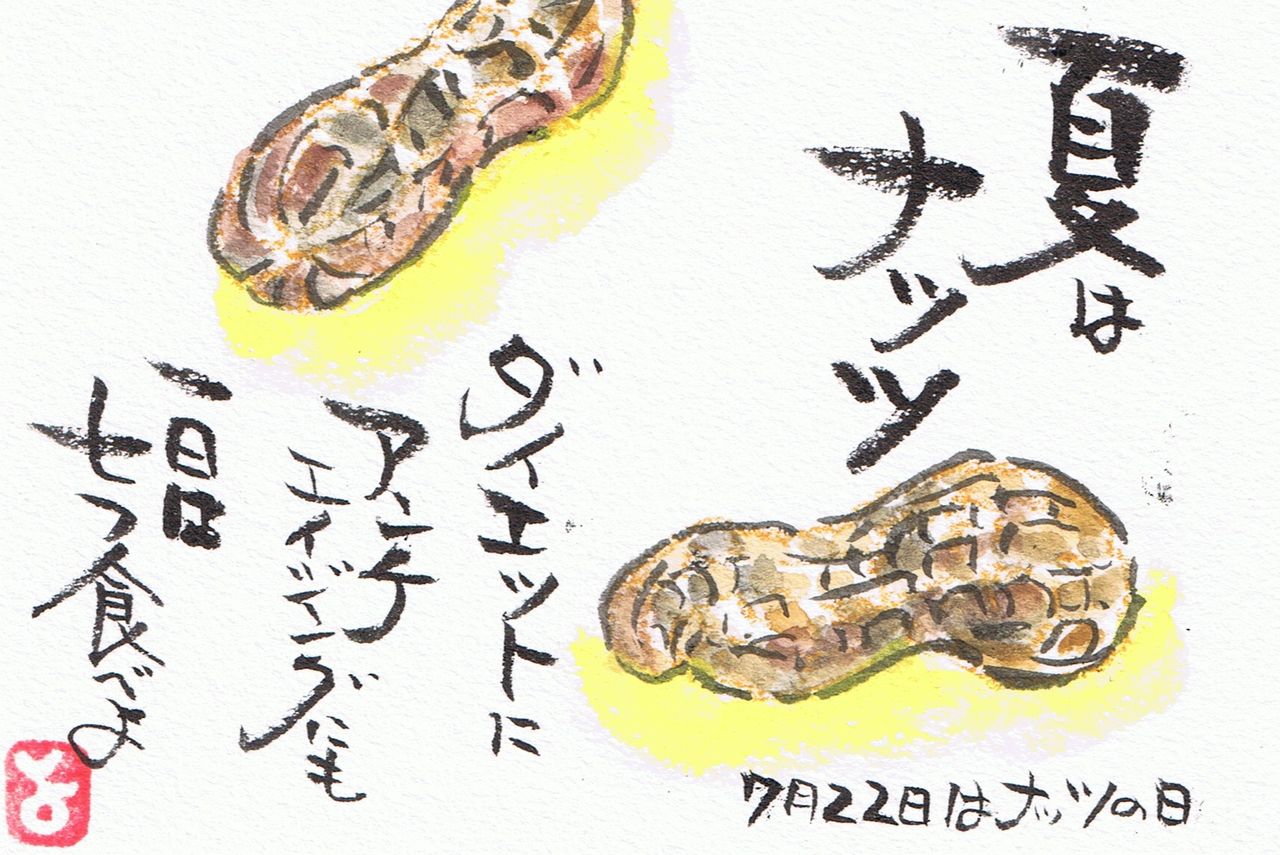 夏は
ナッツ
ダイエットに
アンチ
エイジングにも
一日は
七つ食べよ
7月22日はナッツの日
とよ